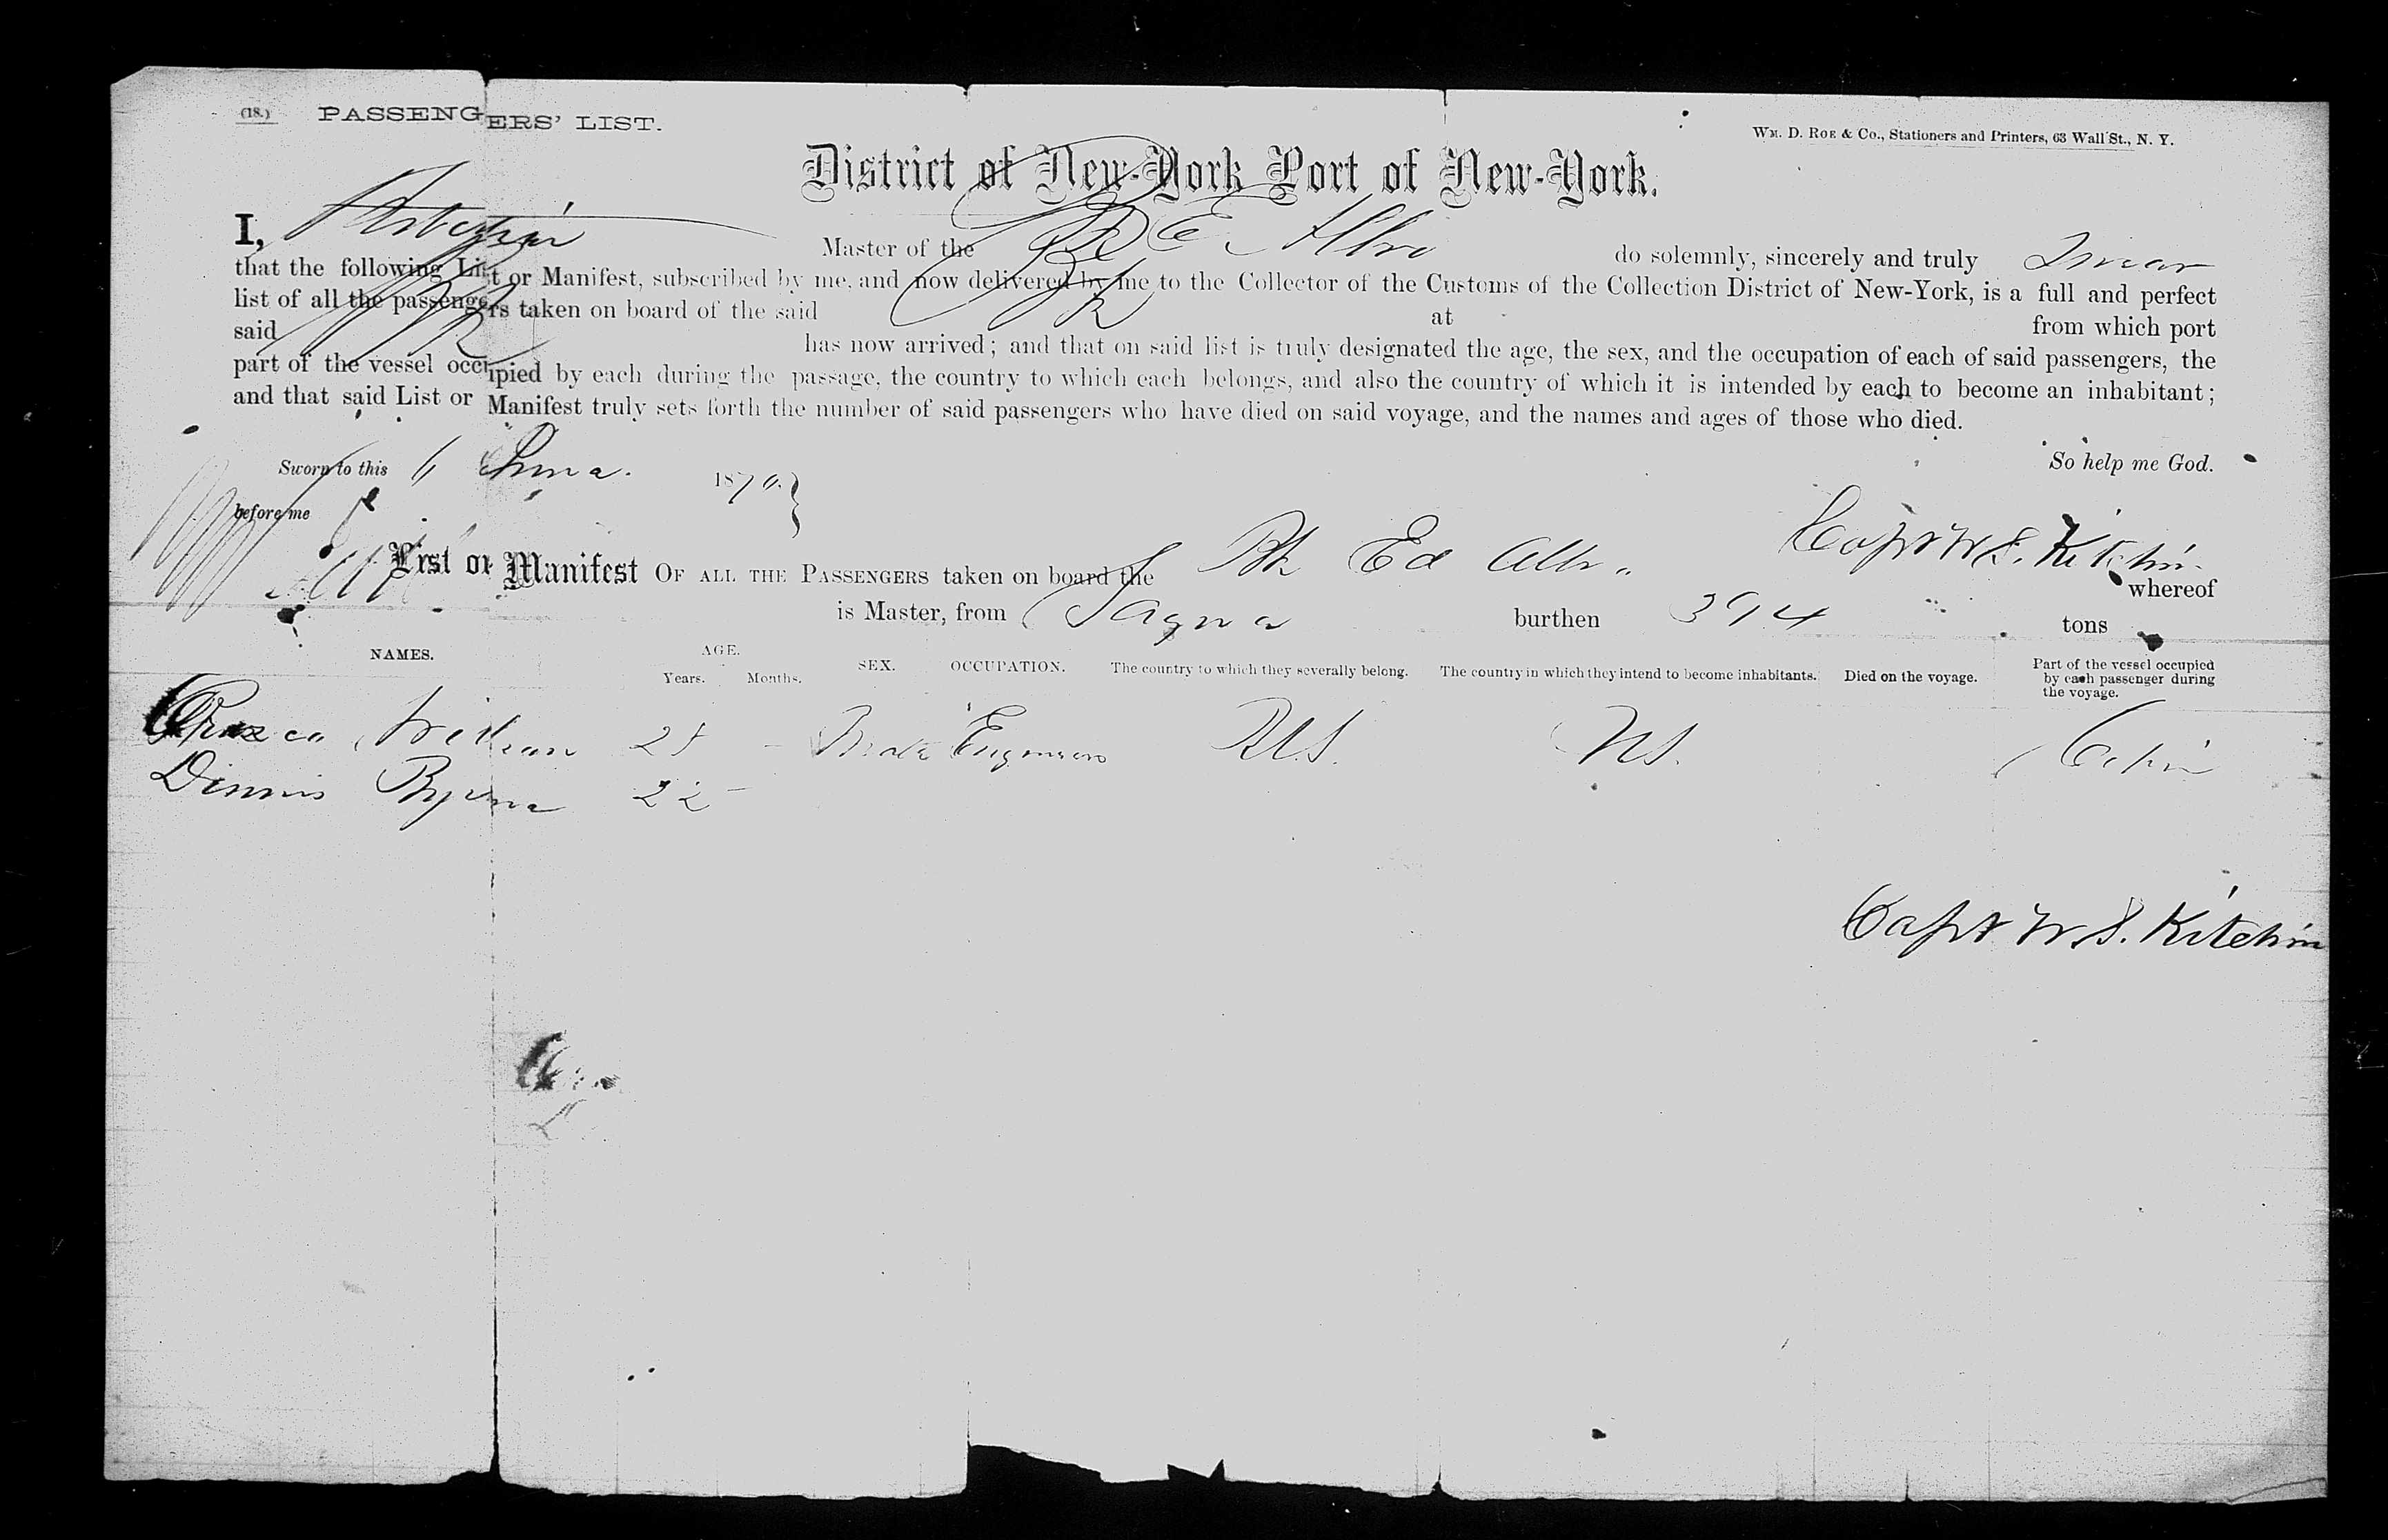 (18.) PASSENGERS' LIST.
Wm. D. Roe & Co., Stationers and Printers, 63 Wall St., N. Y.
District of New-York Port of New-York.
I, Master of the do solemnly, sincerely and truly Swear
that the following List or Manifest, subscribed by me, and now delivered by me to the Collector of the Customs of the Collection District of New-York, is a full and perfect
list of all the passengers taken on board of the said at from which port
said has now arrived; and that on said list is truly designated the age, the sex, and the occupation of each of said passengers, the
part of the vessel occupied by each during the passage, the country to which each belongs, and also the country of which it is intended by each to become an inhabitant;
and that said List or Manifest truly sets forth the number of said passengers who have died on said voyage, and the names and ages of those who died.
So help me God.
Sworn to this 6 June 1870
before me
List or Manifest Of all the Passengers taken on board the Bk Ed Capt W S. Kitchin whereof
is Master, from Sagua burthen 394 tons
NAMES. AGE. Years. Months. SEX. OCCUPATION. The country to which they severally belong. The country in which they intend to become inhabitants. Died on the voyage. Part of the vessel occupied by each passenger during the voyage.
25 - Male Engineers U.S. U.S. Cabin
Dinnis Byrne 22 -
Capt W S. Kitchin